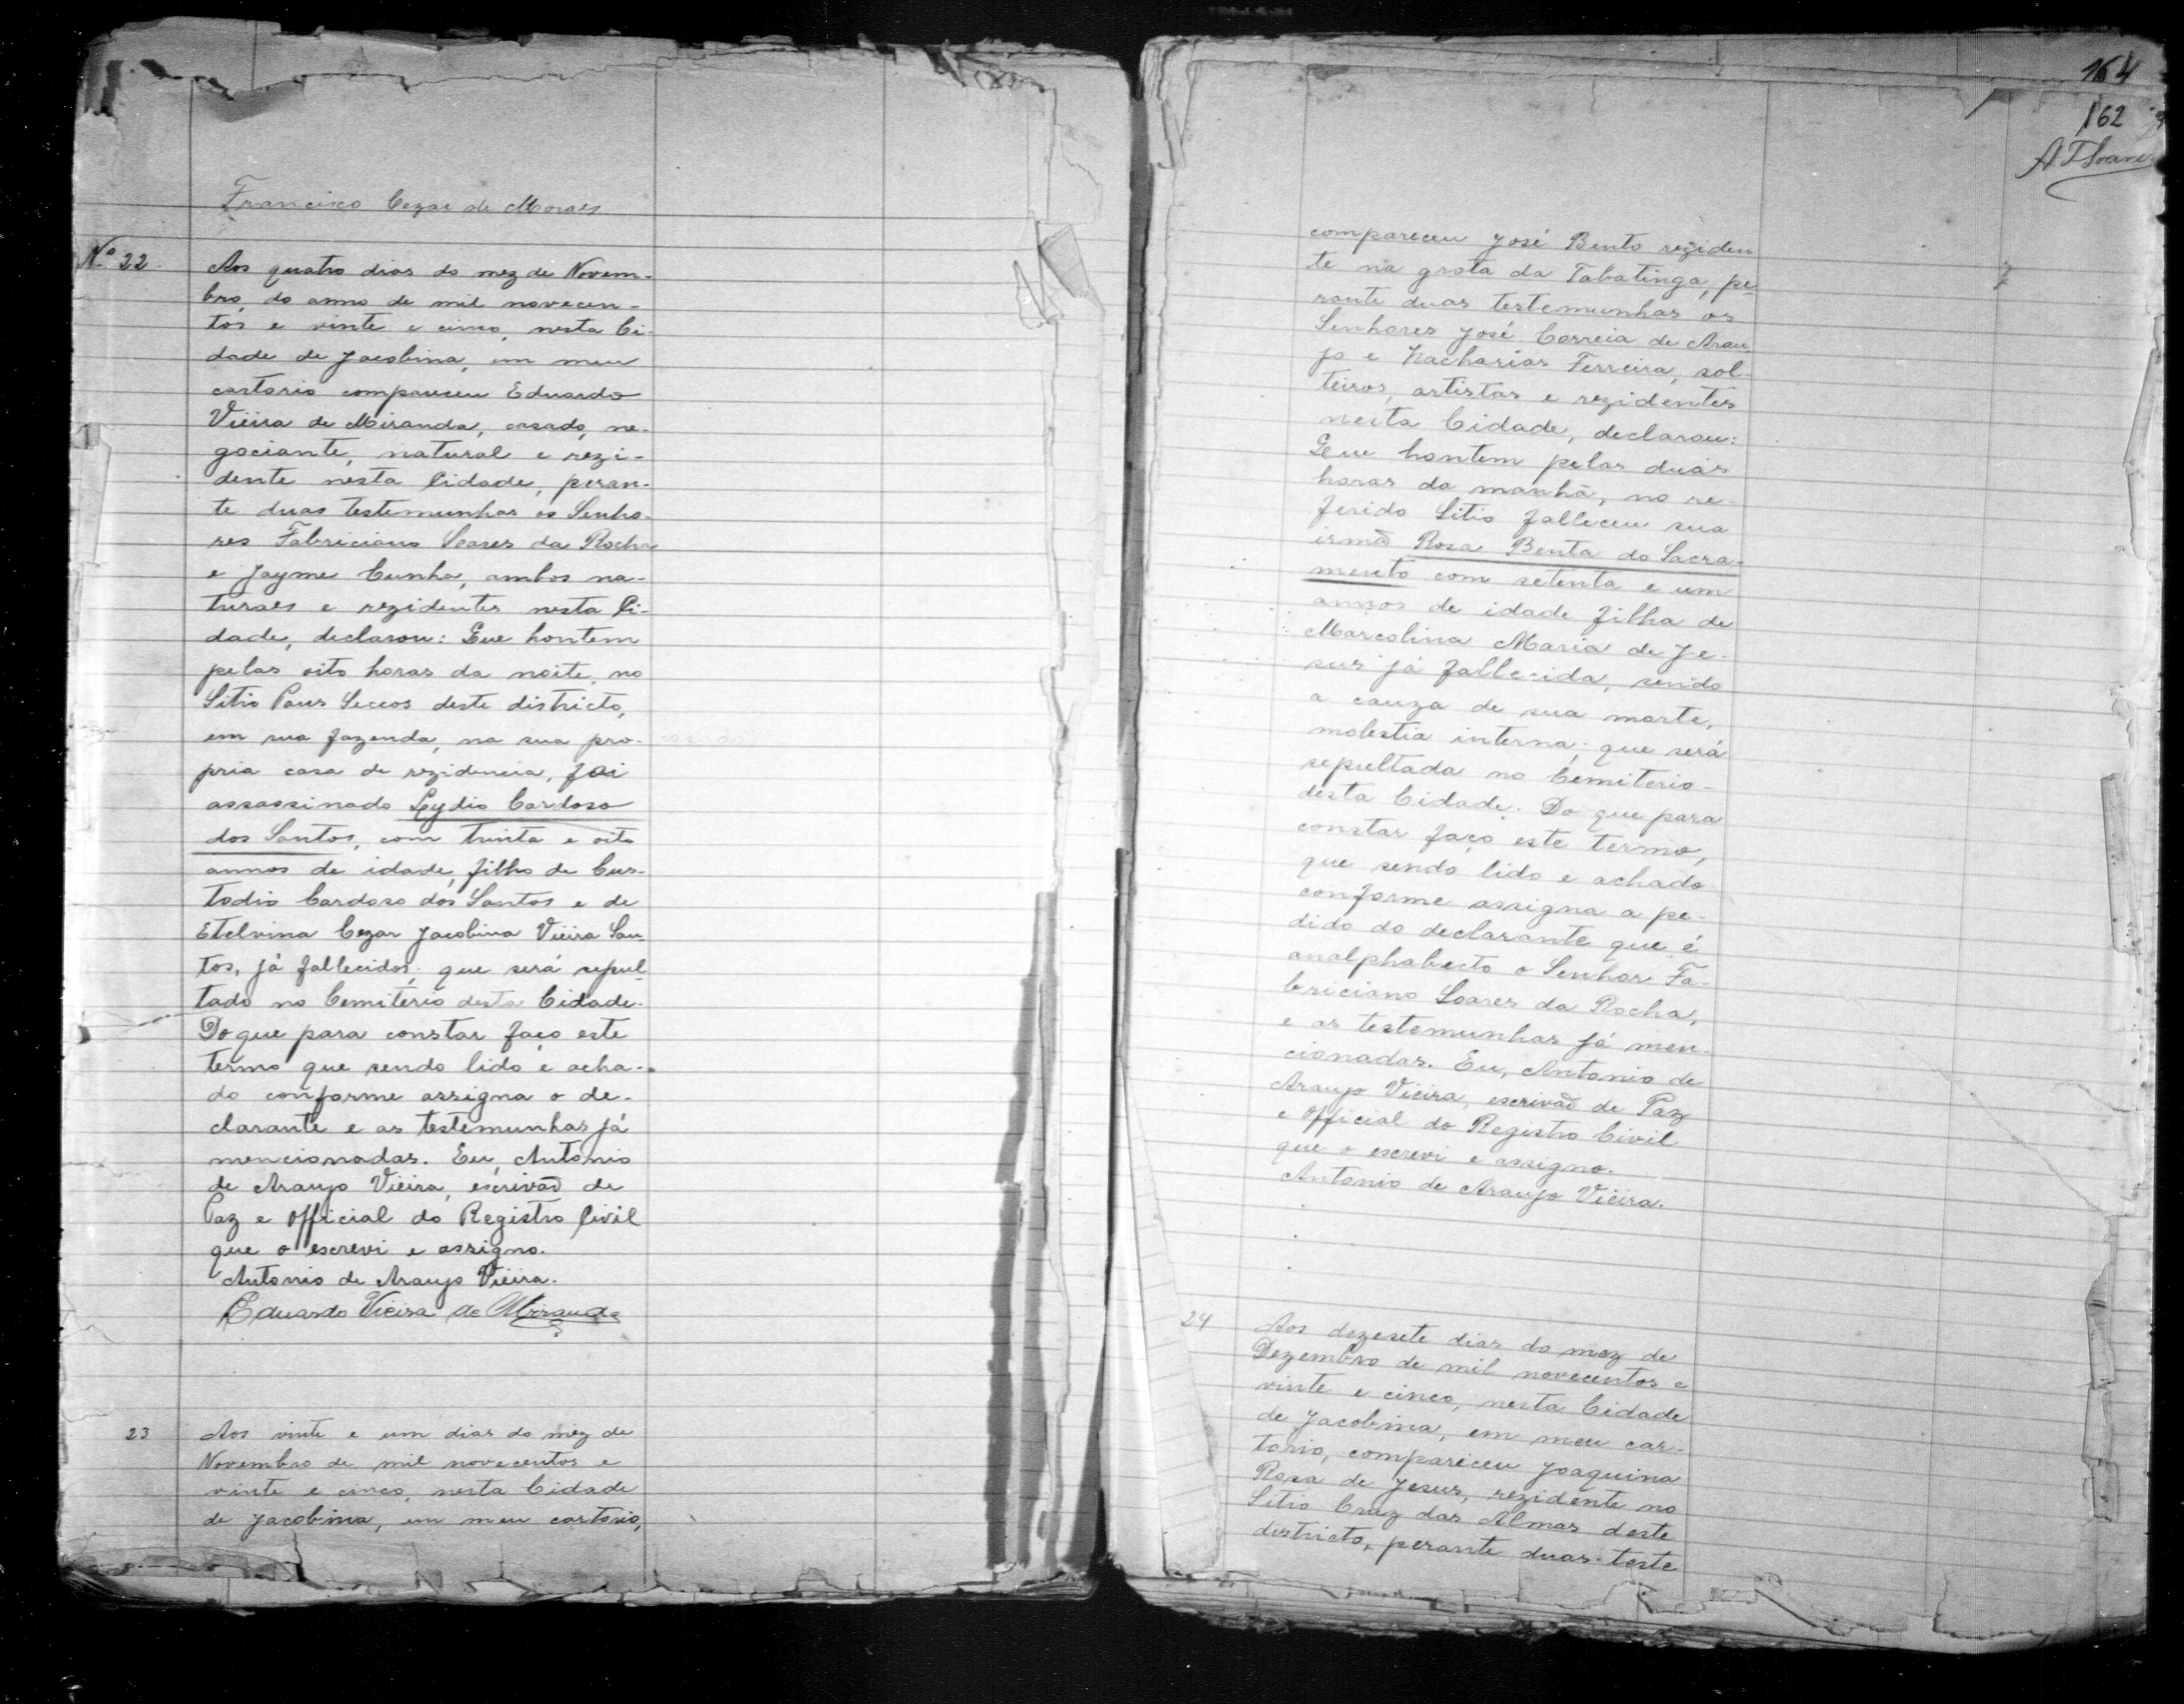 Francisco Cezar de Moraes
Nº 22.
Aos quatro dias do mez de Novem-
bro, do anno de mil novecen-
tos e vinte e cinco, nesta Ci-
dade de Jacobina, em meu
cartorio compareceu Eduardo
Vieira de Miranda, casado, ne-
gociante, natural e rezi-
dente nesta Cidade, peran-
te duas testemunhas os Senho-
res Fabriciano Soares da Rocha
e Jayme Cunha, ambos na-
turaes e rezidentes nesta Ci-
dade, declarou: Que hontem
pelas oito horas da noite, no
Sitio Paus Seccos deste districto,
em sua fazenda, na sua pro-
pria casa de rezidencia, foi
assassinado Lydio Cardoso
dos Santos, com trinta e oito
annos de idade, filho de Cus-
todio Cardoso dos Santos e de
Etelvina Cezar Jacobina Vieira San-
tos, já fallecidos; que será sepul-
tado no Cemiterio desta Cidade.
Do que para constar faço este
termo que sendo lido e acha-
do conforme assigna o de-
clarante e as testemunhas já
mencionadas. Eu, Antonio
de Araujo Vieira, escrivaõ de
Paz e Official do Registro Civil
que o escrevi e assigno.
Antonio de Araujo Vieira.
Eduardo Vieira de Miranda
23
Aos vinte e um dias do mez de
Novembro de mil novecentos e
vinte e cinco, nesta Cidade
de Jacobina, em meu cartorio,
164
162
compareceu José Bento reziden
te na grota da Tabatinga, pe-
rante duas testemunhas os
Senhores José Correia de Arau-
jo e Zacharias Ferreira, sol-
teiros, artistas e rezidentes
nesta Cidade, declarou:
Que hontem pelas duas
horas da manhã, no re-
ferido Sitio falleceu sua
irmã Rosa Benta do Sacra-
mento com setenta e um
annos de idade filha de
Marcolina Maria de Je-
sus já fallecida, sendo
a cauza de sua morte,
molestia interna; que será
sepultada no Cemiterio
desta Cidade. Do que para
constar faço este termo,
que sendo lido e achado
conforme assigna a pe-
dido do declarante que é
analphabecto o Senhor Fa-
briciano Soares da Rocha,
e as testemunhas já men-
cionadas. Eu, Antonio de
Araujo Vieira, escrivaõ de Paz
e Official do Registro Civil
que o escrevi e assigno.
Antonio de Araujo Vieira.
24
Aos dezesete dias do mez de
Dezembro de mil novecentos e
vinte e cinco, nesta Cidade
de Jacobina, em meu car-
torio, compareceu Joaquina
Rosa de Jesus, rezidente no
Sitio Cruz das Almas deste
districto, perante duas teste